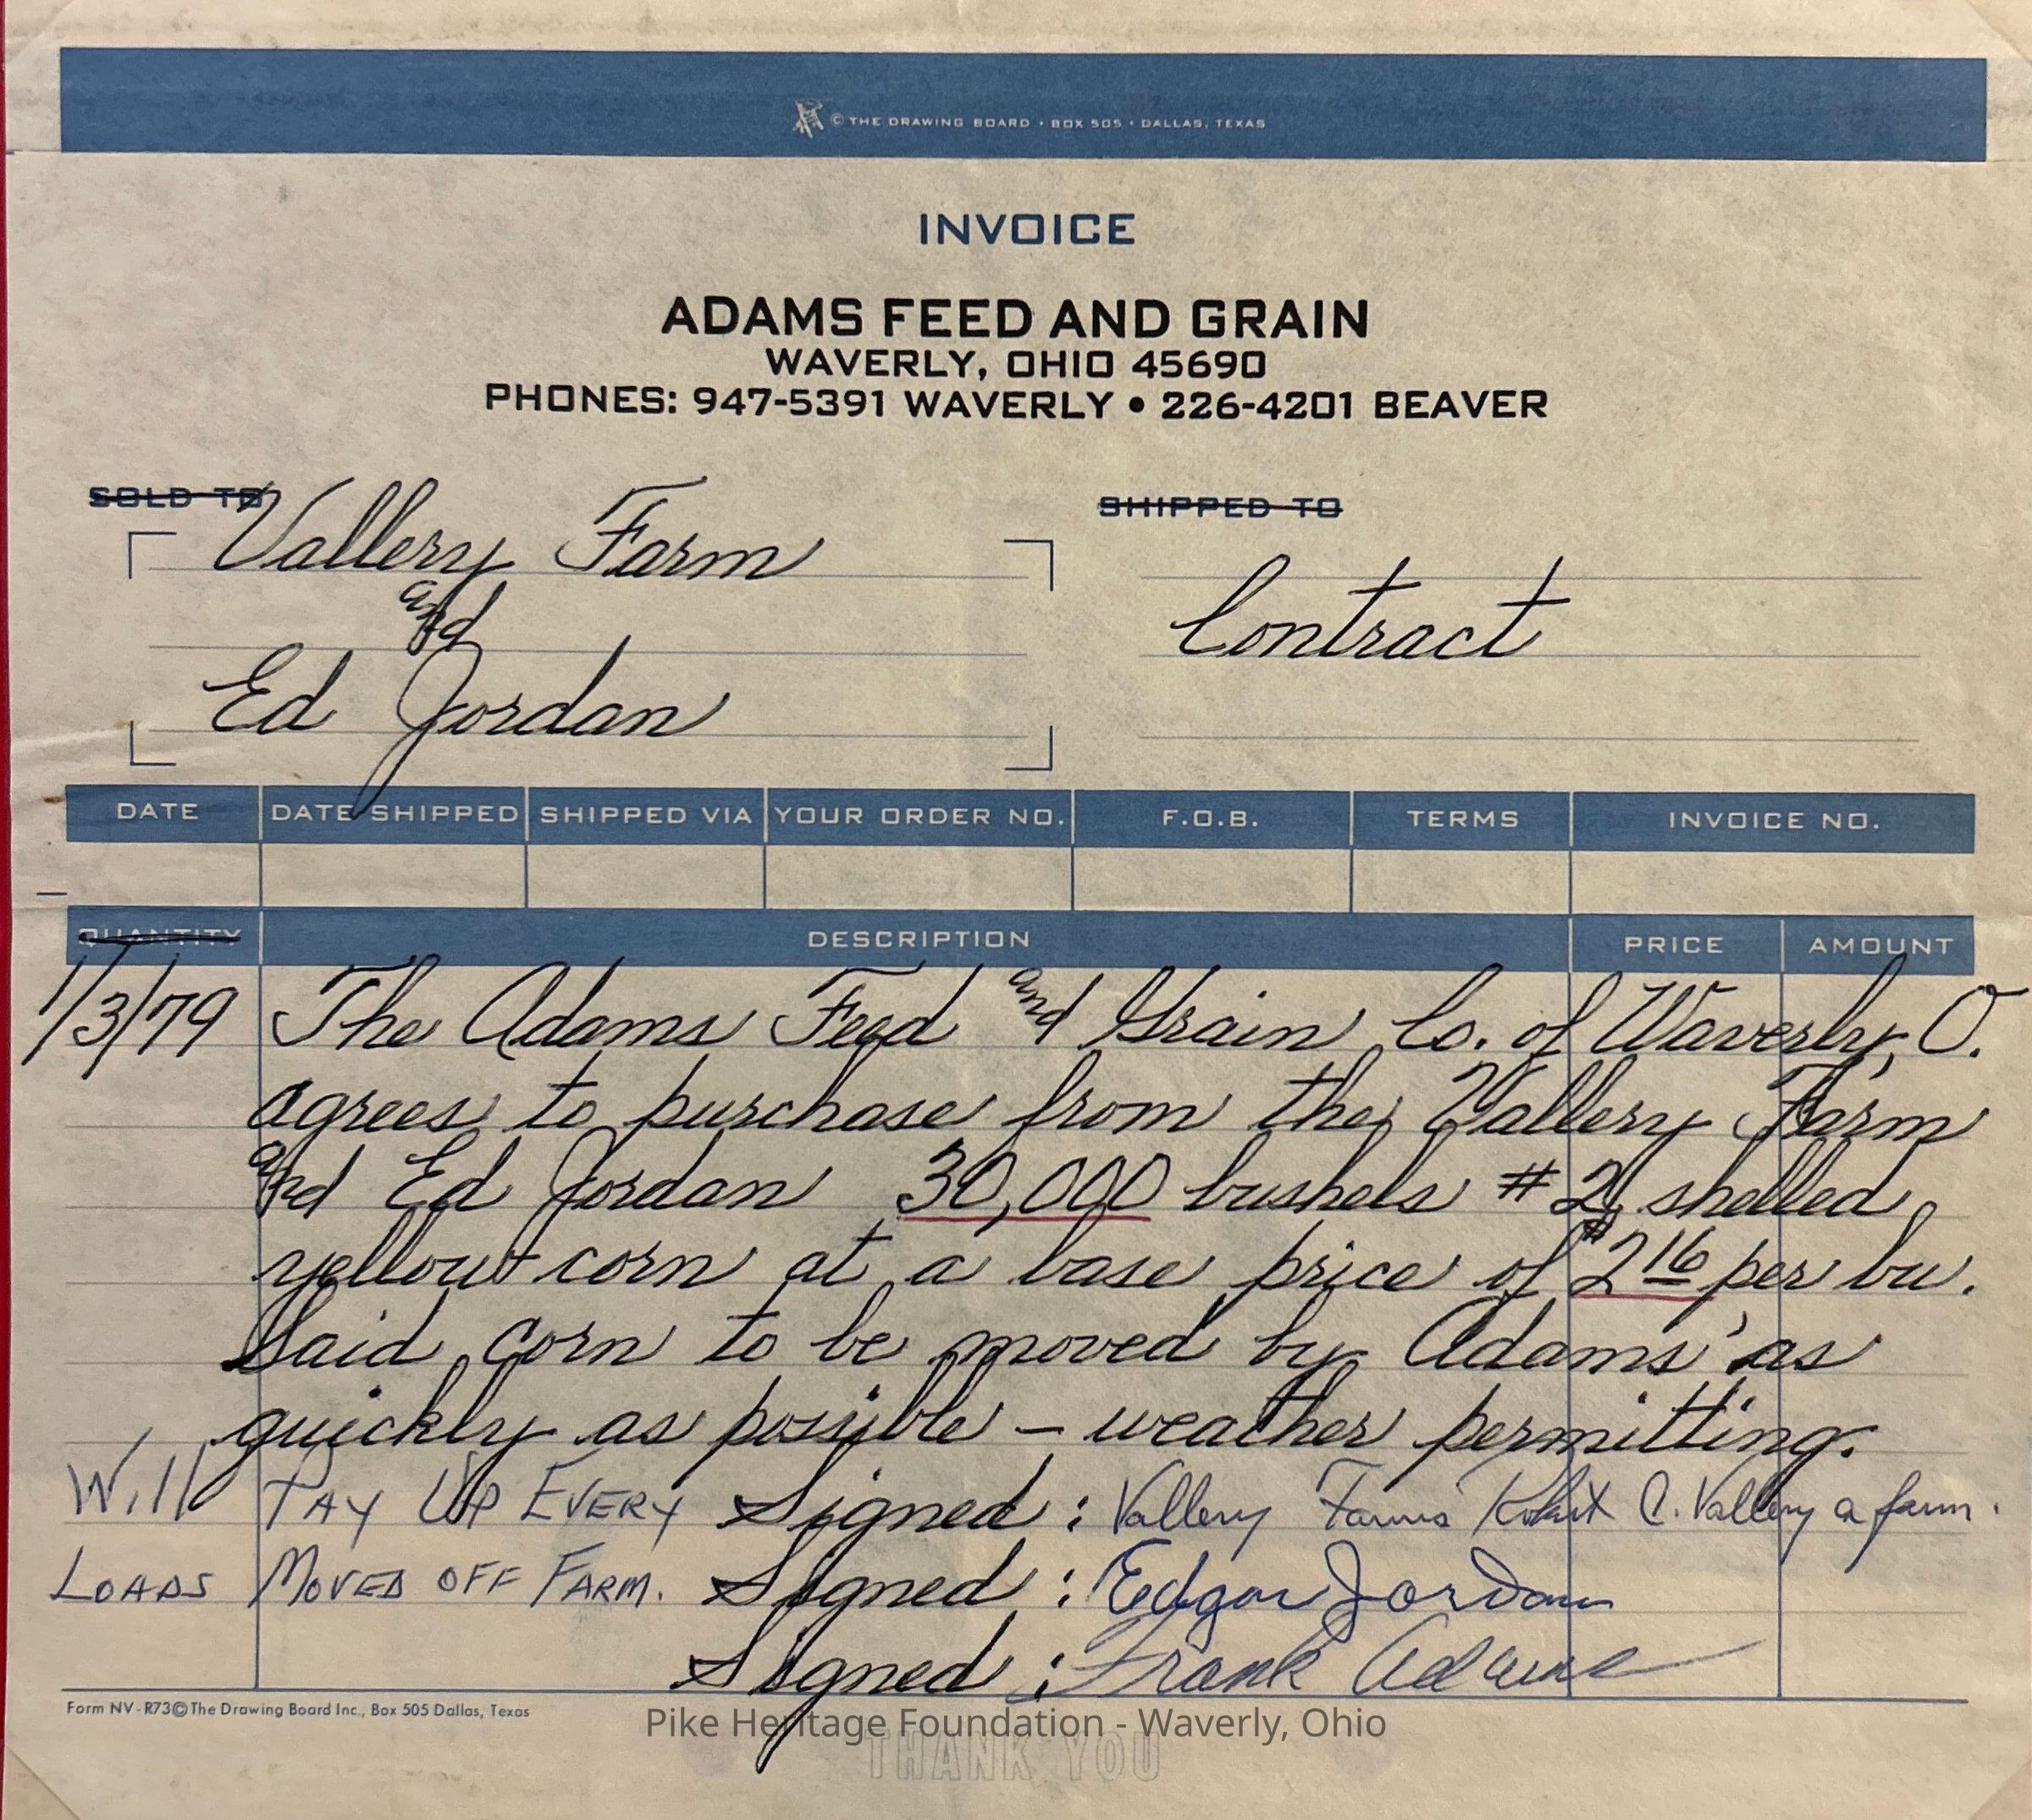 © THE DRAWING BOARD • BOX 505 • DALLAS, TEXAS
INVOICE
ADAMS FEED AND GRAIN
WAVERLY, OHIO 45690
PHONES: 947-5391 WAVERLY • 226-4201 BEAVER
SOLD TO
SHIPPED TO
Vallery Farm
and
Ed Jordan
Contract
DATE DATE SHIPPED SHIPPED VIA YOUR ORDER NO. F.O.B. TERMS INVOICE NO.
QUANTITY DESCRIPTION PRICE AMOUNT
1/3/79 The Adams Feed and Grain Co. of Waverly, O.
agrees to purchase from the Vallery Farm
and Ed Jordan 30,000 bushels #2 shelled
yellow corn at a base price of $2 16 per bu.
Said corn to be moved by Adams' as
quickly as possible – weather permitting.
Will PAY UP EVERY Signed : Vallery Farms Robert C. Vallery a farm.
LOADS MOVED OFF FARM. Signed : Edgar Jordan
Signed : Frank Adams
Form NV-R73 © The Drawing Board Inc., Box 505 Dallas, Texas
Pike Heritage Foundation - Waverly, Ohio
THANK YOU